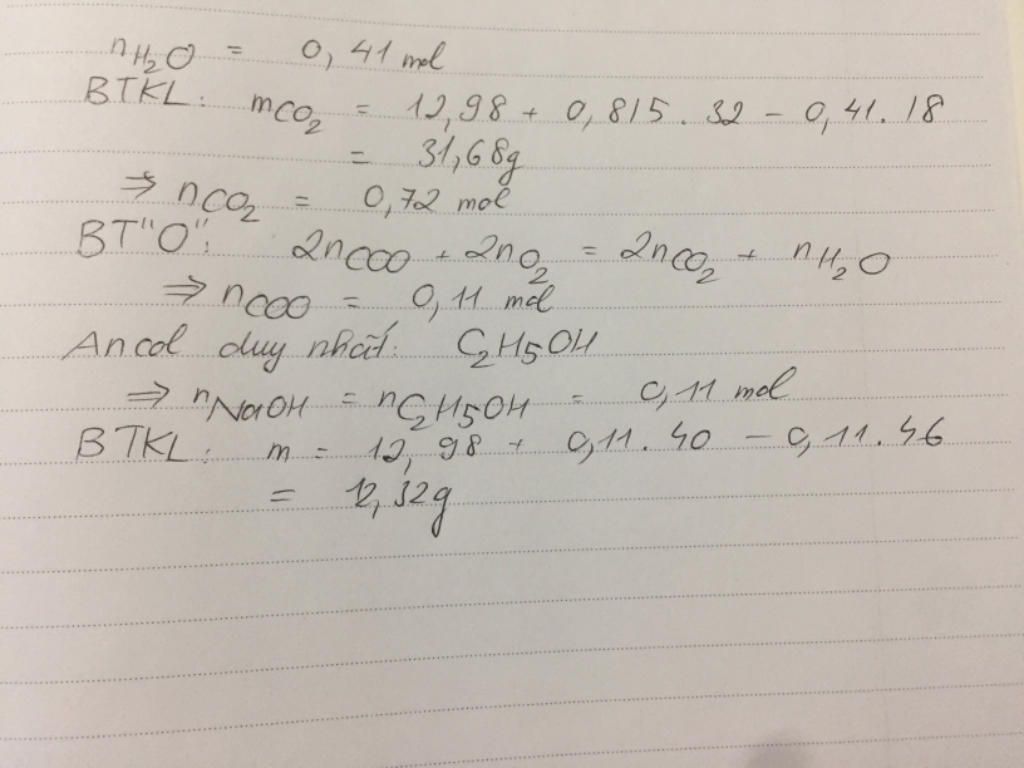 nH2O = 0,41 mol
BTKL: mCO2 = 12,98 + 0,815. 32 - 0,41. 18
= 31,68g
⇒ nCO2 = 0,72 mol
BT"O": 2nCOO + 2nO2 = 2nCO2 + nH2O
⇒ nCOO = 0,11 mol
Ancol duy nhất: C2H5OH
⇒ nNaOH = nC2H5OH = 0,11 mol
BTKL: m = 12,98 + 0,11. 40 - 0,11. 46
= 12,32g